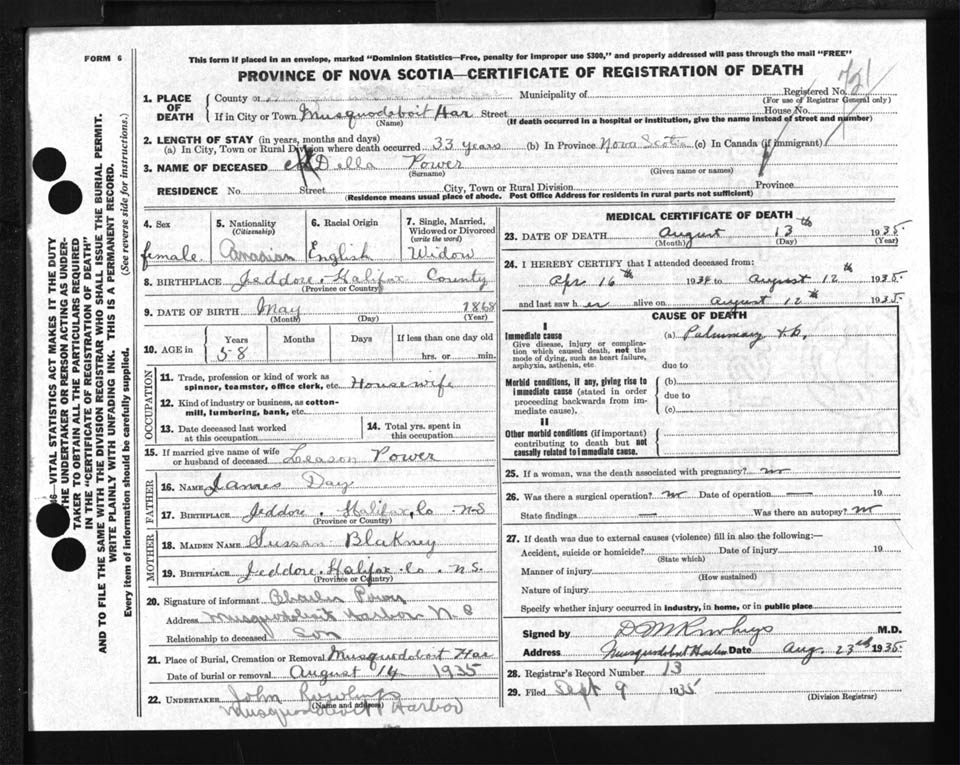 FORM 6
This form if placed in an envelope, marked "Dominion Statistics—Free, penalty for improper use $300," and properly addressed will pass through the mail "FREE"
PROVINCE OF NOVA SCOTIA—CERTIFICATE OF REGISTRATION OF DEATH
1. PLACE OF DEATH
County of
Municipality of
Registered No.
(For use of Registrar General only)
If in City or Town Musquodoboit Har Street House No.
(Name) (If death occurred in a hospital or institution, give the name instead of street and number)
2. LENGTH OF STAY (in years, months and days)
(a) In City, Town or Rural Division where death occurred 33 years (b) In Province Nova Scotia (c) In Canada (if immigrant)
3. NAME OF DECEASED Della Power
(Surname) (Given name or names)
RESIDENCE No. Street City, Town or Rural Division Province
(Residence means usual place of abode. Post Office Address for residents in rural parts not sufficient)
4. Sex
female
5. Nationality (Citizenship)
Canadian
6. Racial Origin
English
7. Single, Married, Widowed or Divorced (write the word)
Widow
8. BIRTHPLACE Jeddore. Halifax County
(Province or Country)
9. DATE OF BIRTH May 1868
(Month) (Day) (Year)
10. AGE in Years Months Days If less than one day old
58 hrs. or min.
OCCUPATION
11. Trade, profession or kind of work as spinner, teamster, office clerk, etc. Housewife
12. Kind of industry or business, as cotton-mill, lumbering, bank, etc.
13. Date deceased last worked at this occupation
14. Total yrs. spent in this occupation
15. If married give name of wife or husband of deceased Leason Power
FATHER
16. NAME James Day
17. BIRTHPLACE Jeddore. Halifax Co N.S
(Province or Country)
MOTHER
18. MAIDEN NAME Sussan Blakney
19. BIRTHPLACE Jeddore. Halifax Co. N.S.
(Province or Country)
20. Signature of informant Charles Power
Address Musquodoboit Harbor N.S
Relationship to deceased Son
21. Place of Burial, Cremation or Removal Musquodoboit Har
Date of burial or removal August 14 1935
22. UNDERTAKER John Rowlings
(Name and address)
Musquodoboit Harbor
MEDICAL CERTIFICATE OF DEATH
23. DATE OF DEATH August 13th 1935
(Month) (Day) (Year)
24. I HEREBY CERTIFY that I attended deceased from:
Apr 16th 1934 to August 12th 1935
and last saw her alive on August 12th 1935
CAUSE OF DEATH
I
Immediate cause
Give disease, injury or complication which caused death, not the mode of dying, such as heart failure, asphyxia, asthenia, etc.
(a) Pulmonary t.b.
due to
Morbid conditions, if any, giving rise to immediate cause (stated in order proceeding backwards from immediate cause).
(b)
due to
(c)
II
Other morbid conditions (if important) contributing to death but not causally related to immediate cause.
25. If a woman, was the death associated with pregnancy? no
26. Was there a surgical operation? no Date of operation — 19
State findings — Was there an autopsy? no
27. If death was due to external causes (violence) fill in also the following:—
Accident, suicide or homicide? Date of injury 19
(State which)
Manner of injury
(How sustained)
Nature of injury
Specify whether injury occurred in industry, in home, or in public place
Signed by D M Rowlings M.D.
Address Musquodoboit Harbor Date Aug. 23rd 1935
28. Registrar's Record Number 13
29. Filed Sept 9 1935
(Division Registrar)
—VITAL STATISTICS ACT MAKES IT THE DUTY
THE UNDERTAKER OR PERSON ACTING AS UNDER-
TAKER TO OBTAIN ALL THE PARTICULARS REQUIRED
IN THE "CERTIFICATE OF REGISTRATION OF DEATH"
AND TO FILE THE SAME WITH THE DIVISION REGISTRAR WHO SHALL ISSUE THE BURIAL PERMIT.
WRITE PLAINLY WITH UNFADING INK. THIS IS A PERMANENT RECORD.
Every item of information should be carefully supplied. (See reverse side for instructions.)